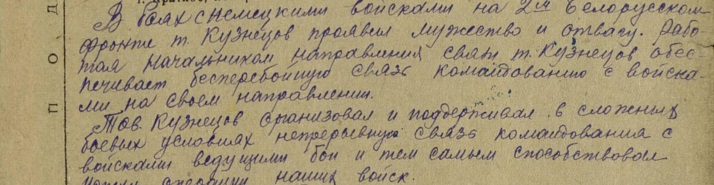 П О Д
В боях с немецкими войсками на 2ом Белорусском
фронте т. Кузнецов проявил мужество и отвагу. Рабо-
тая начальником направления связи т. Кузнецов обес-
печивает бесперебойную связь командованию с войска-
ми на своем направлении.
Тов. Кузнецов организовал и поддерживал в сложных
боевых условиях непрерывную связь командования с
войсками ведущими бои и тем самым способствовал
операции наших войск.